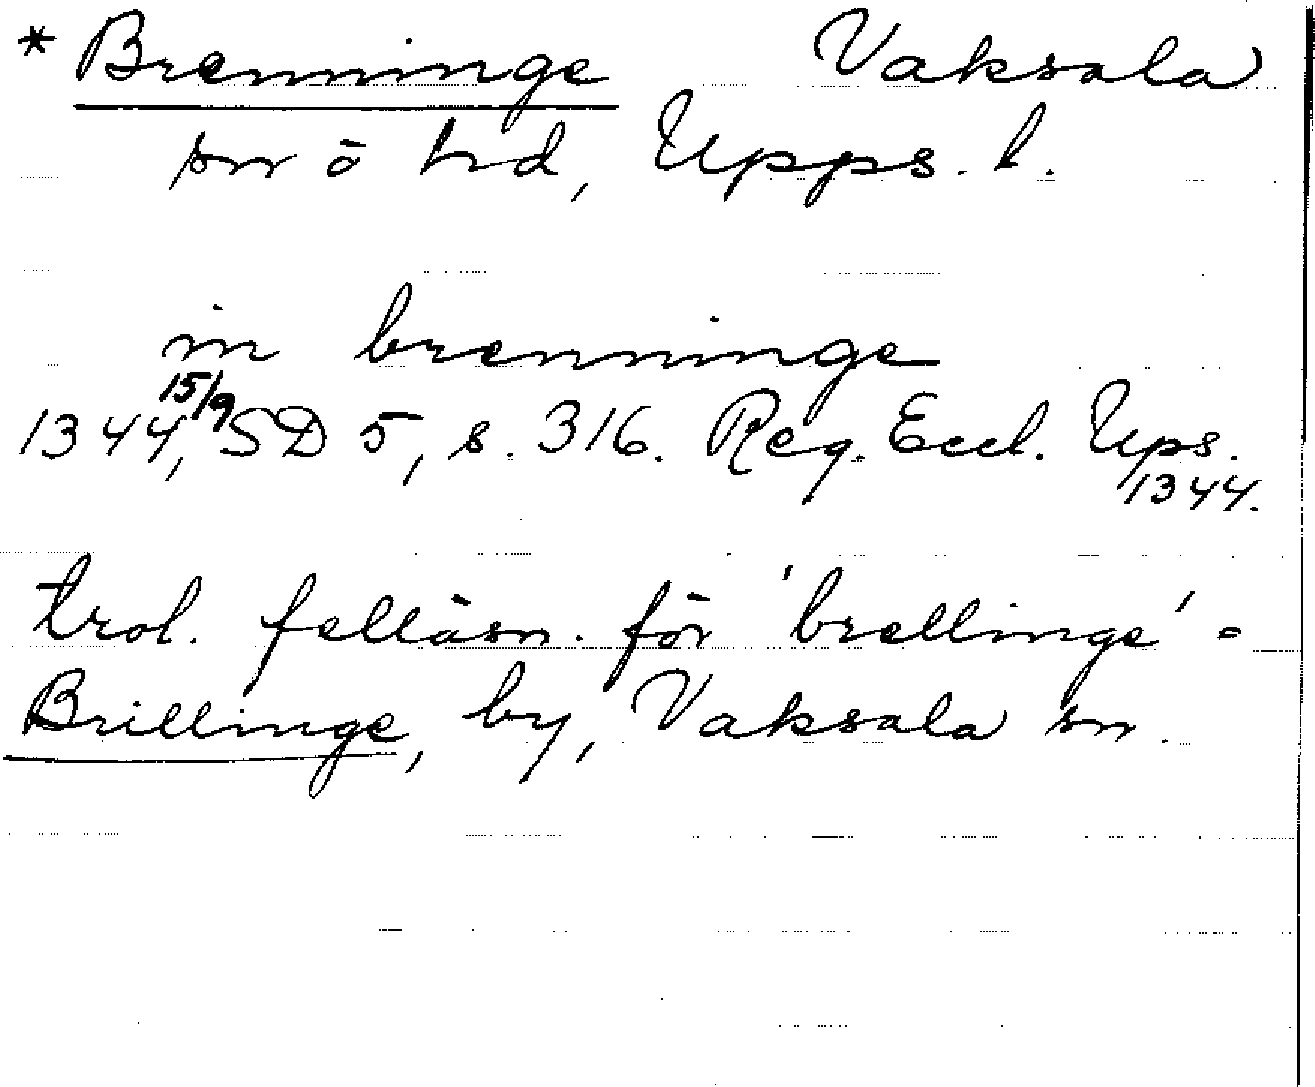 * Brenninge Vaksala
sn o hd, Upps. l.
in brenninge
1344, 15/9 SD 5, s. 316. Reg. Eccl. Ups.
1344.
trol. felläsn. för 'brellinge' =
Brillinge, by, Vaksala sn.